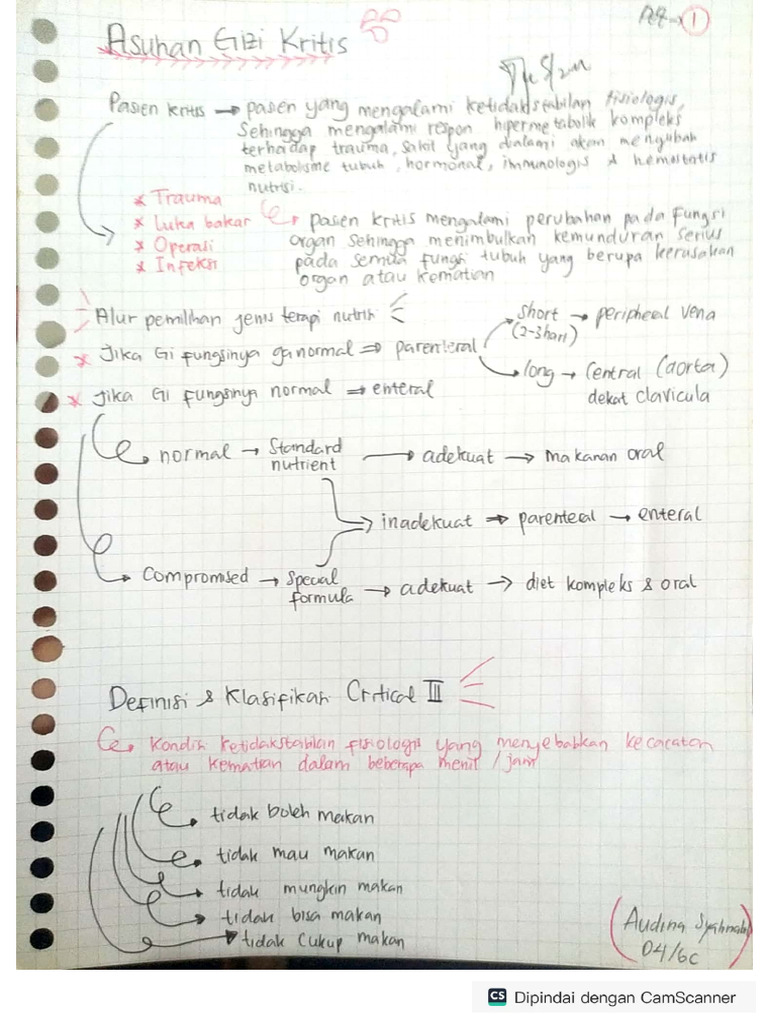 Asuhan Gizi Kritis
①
Pasien kritis → pasen yang mengalami ketidakstabilan fisiologis,
Sehingga mengalami respon hipermetabolik kompleks
terhadap trauma, sakit yang dialami akan mengubah
metabolisme tubuh, hormonal, immunologis & hemostatis
nutrisi.
* Trauma
* Luka bakar
* Operasi
* Infeksi
pasien kritis mengalami perubahan pada Fungsi
organ sehingga menimbulkan kemunduran serius
pada semua fungsi tubuh yang berupa kerusakan
organ atau kematian
Alur pemilihan jenis terapi nutrisi
* Jika Gi fungsinya ga normal ⇒ parenteral
short → peripheral vena
(2-3 hari)
long → Central (aorta)
dekat clavicula
* Jika Gi fungsinya normal ⇒ enteral
normal → Standard nutrient → adekuat → makanan oral
inadekuat → parenteral → enteral
Compromised → Special formula → adekuat → diet kompleks & oral
Definisi & Klasifikasi Critical Ill
Kondisi ketidakstabilan fisiologis yang menyebabkan kecacatan
atau kematian dalam beberapa menit / jam
tidak boleh makan
tidak mau makan
tidak mungkin makan
tidak bisa makan
tidak cukup makan
Audina
D4/6C
CS Dipindai dengan CamScanner